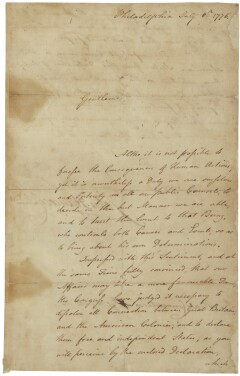 Philadelphia July 6th 1776.
Gentlemen
Altho it is not possible to
foresee the Consequences of Human Actions
yet it is nevertheless a Duty we owe ourselves
and Posterity in all our public Counsels, to
decide in the best Manner we are able,
and to trust the Event to that Being,
who controuls both Causes and Events, so as
to bring about his own Determinations.
Impressed with this Sentiment, and at
the same Time fully convinced that our
Affairs may take a more favourable Turn
the Congress have judged it necessary to
dissolve all Connection between Great Britain
and the American Colonies, and to declare
them free and independent States, as you
will perceive by the enclosed Declaration,
which